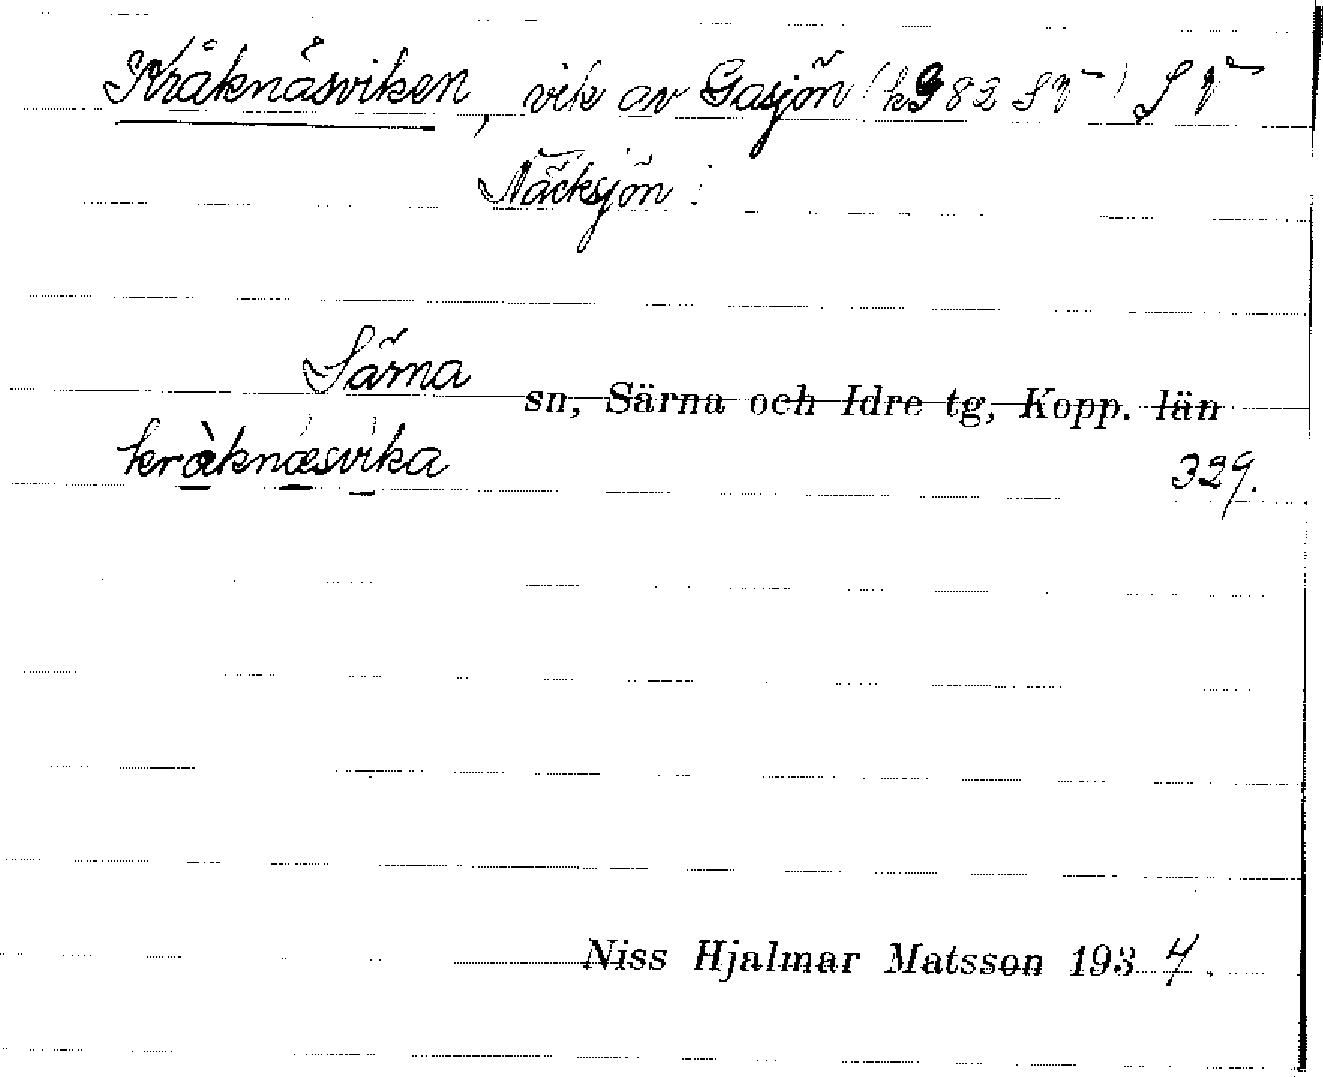 Kråknäsviken, vik av Gasjön (k982 SV) SV
Näcksjön.
Särna sn, Särna och Idre tg, Kopp. län
kråknæsvika 329.
Niss Hjalmar Matsson 1934.